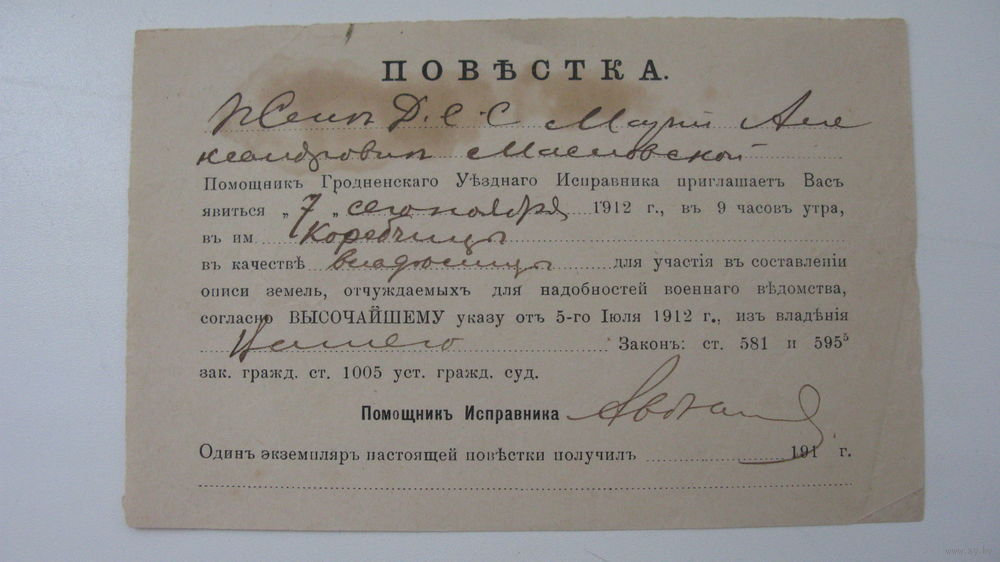 ПОВѢСТКА.
Женѣ Д. С. С. Маріи Але
ксандровнѣ Масловской
Помощникъ Гродненскаго Уѣзднаго Исправника приглашаетъ Васъ
явиться „ 7 „ сего ноября 1912 г., въ 9 часовъ утра,
въ им. Коробчицы
въ качествѣ владѣлицы для участія въ составленіи
описи земель, отчуждаемыхъ для надобностей военнаго вѣдомства,
согласно ВЫСОЧАЙШЕМУ указу отъ 5-го Іюля 1912 г., изъ владѣнія
Вашего Законъ: ст. 581 и 595⁵
зак. гражд. ст. 1005 уст. гражд. суд.
Помощникъ Исправника
Одинъ экземпляръ настоящей повѣстки получилъ 191 г.
www.ay.by